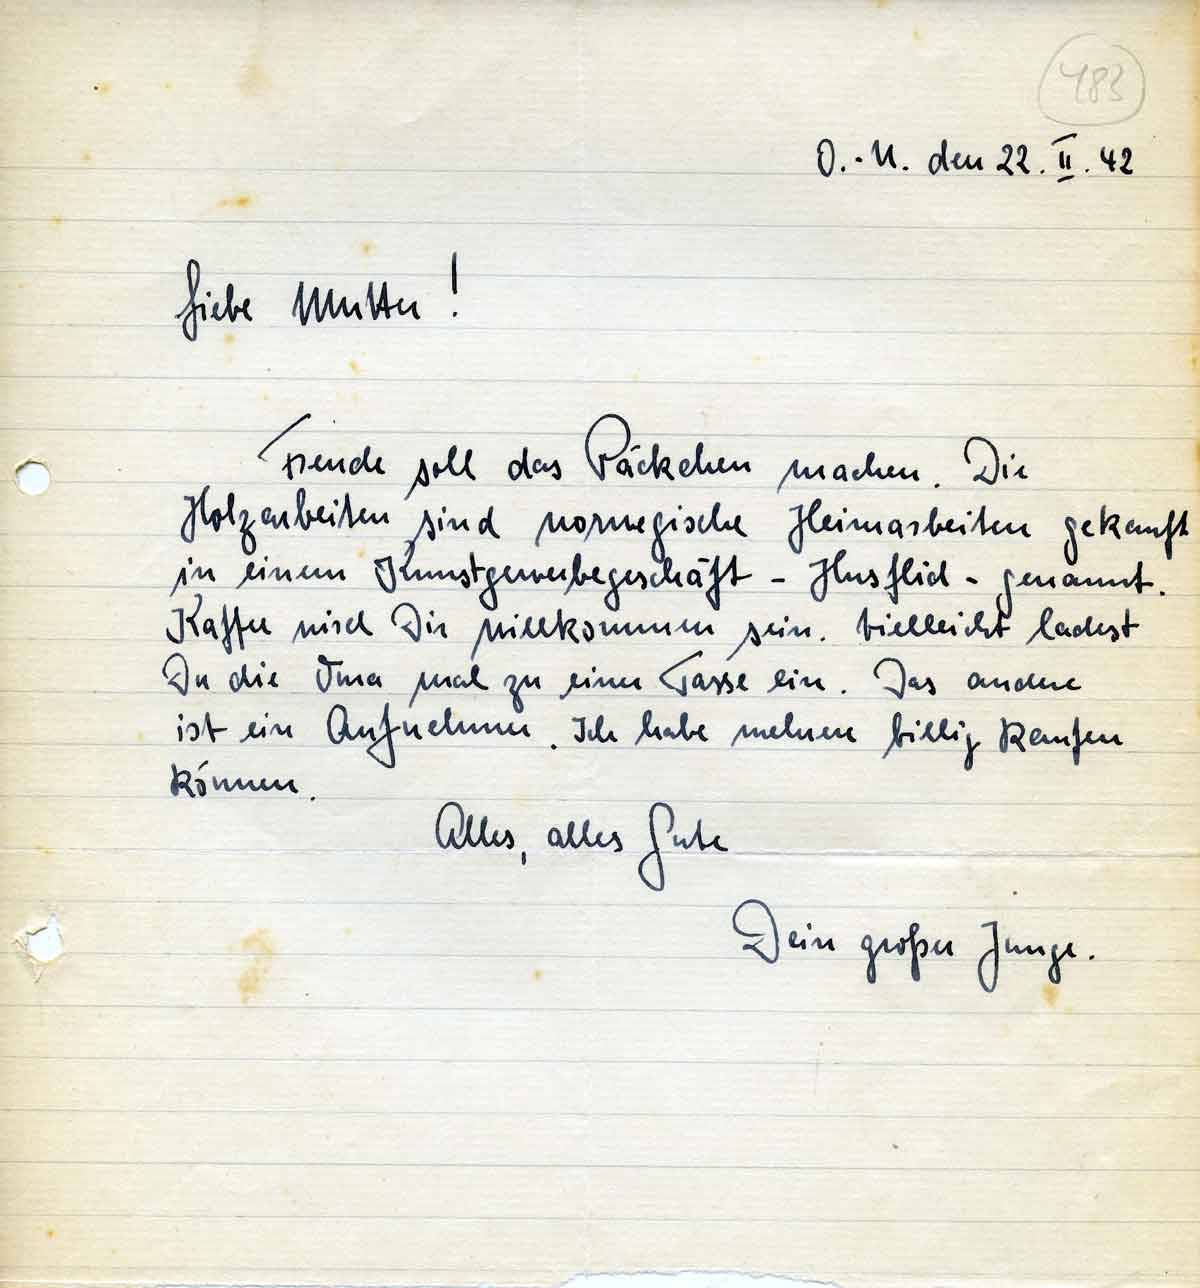 483
O.-U. den 22. II. 42
Liebe Mutter!
Freude soll das Päckchen machen. Die
Holzarbeiten sind norwegische Heimarbeiten gekauft
in einem Kunstgewerbegeschäft - Husflid - genannt.
Kaffee wird Dir willkommen sein. Vielleicht ladest
Du die Oma mal zu einer Tasse ein. Das andere
ist ein Aufnehmer. Ich habe mehrere billig kaufen
können.
Alles, alles Gute
Dein großer Junge.